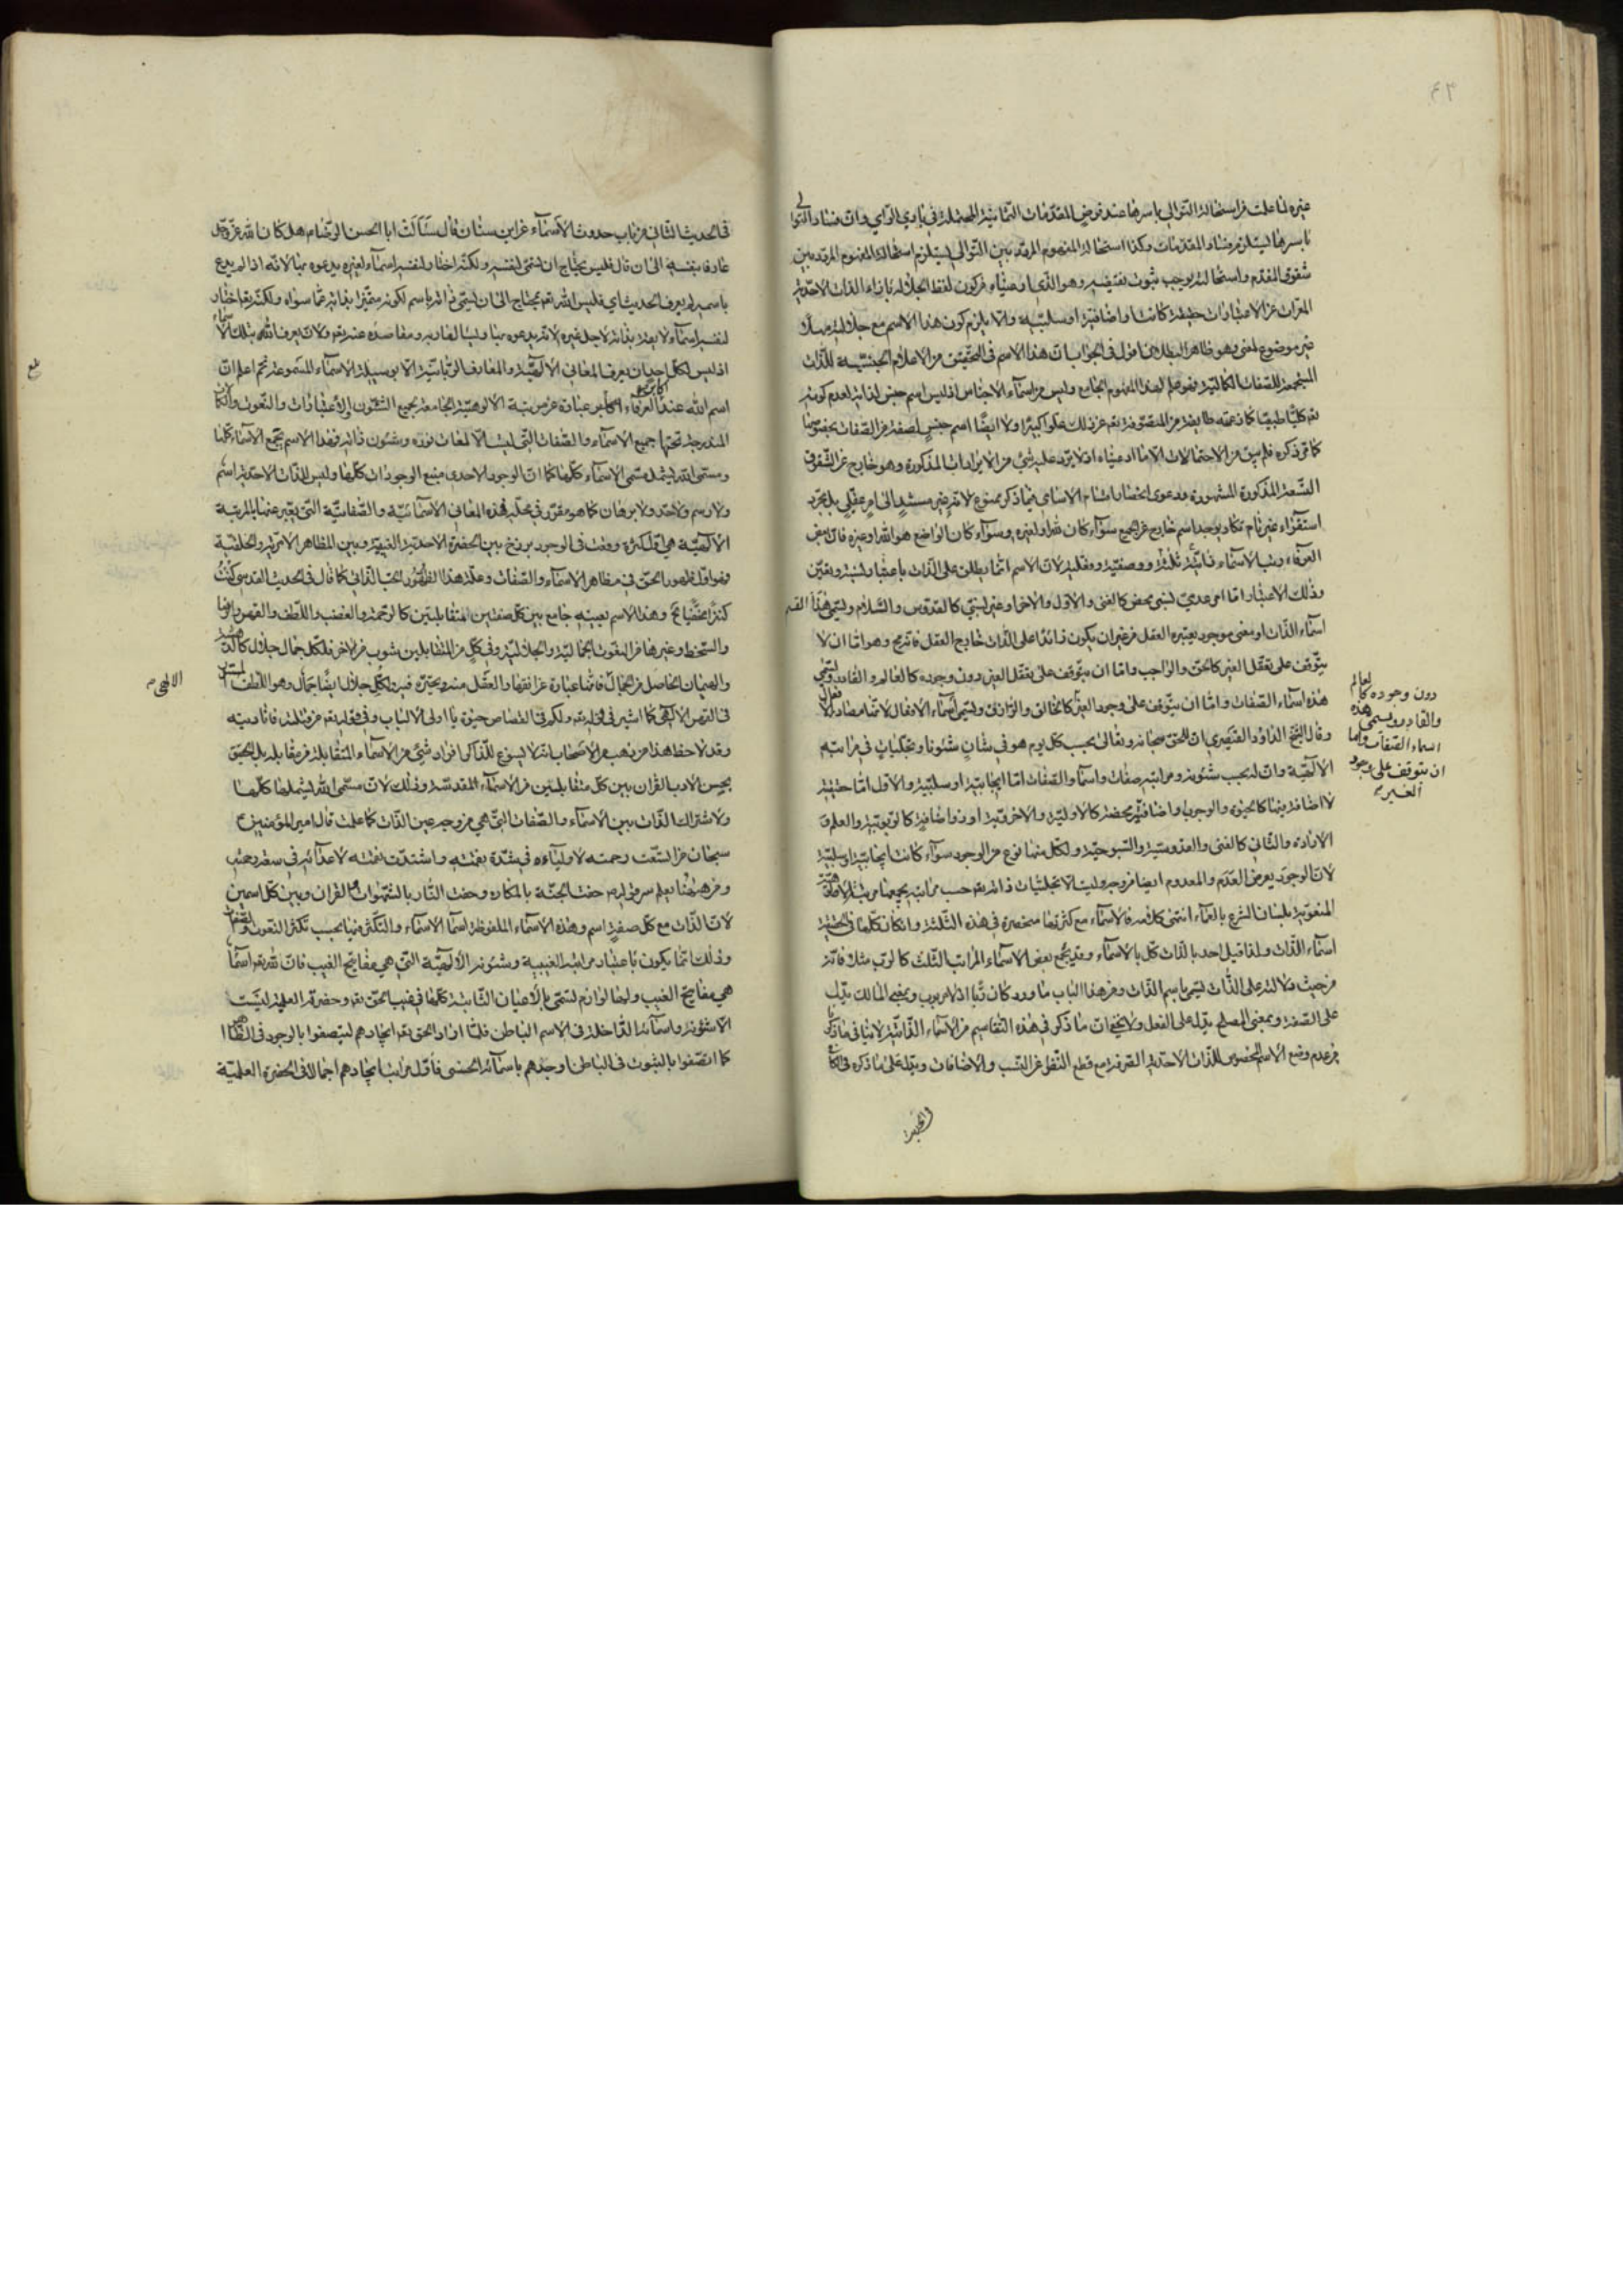 ٤٣
غيره لما علمت من استحالة التوالي باسرها عند فرض المقدمات الثمانية المحتملة في بادي الراي وان فساد التوالي
باسرها ليستلزم فساد المقدمات وكذا استحالة المفهوم المردد بين التوالي ليستلزم استحالة المفهوم المردد بين
شقوق المقدم واستحالته يوجب ثبوت نقيضه وهو الذي اوميناه من كون لفظ الجلالة بازاء الذات الاحدية
المعراة عن الاعتبارات حقيقة كانت او اضافية او سلبية والا يلزم كون هذا الاسم مع جلالته مهملا
غير موضوع لمعنى وهو ظاهر البطلان اقول في الجواب ان هذا الاسم في التحقيق من الاعلام الجنسية للذات
المستجمعة للصفات الكمالية فهو علم لهذا المفهوم الجامع وليس من اسماء الاجناس اذ ليس اسم جنس لذاته لعدم كونه
تع كليا طبيعيا كما زعمه طايفة من المتصوفة تع عن ذلك علوا كبيرا ولا ايضا اسم جنس لصفة من الصفات بخصوصها
كما مر ذكره فلم يبق من الاحتمالات الا ما ادعيناه اذ لا يرد عليه شيء من الايرادات المذكورة وهو خارج عن الشقوق
التسعة المذكورة المشهورة ودعوى انحصار اقسام الاسامي فيما ذكر ممنوع لانه غير مستند الى امر عقلي بل مجرد
استقراء غير تام تكاد يوجد اسم خارج عن الجميع سواء كان لله او لغيره وسواء كان الواضع هو الله او غيره قال بعض
العرفاء وتب الاسماء ذاتية ثلثة ووصفية وفعلية لان الاسم انما يطلق على الذات باعتبار نسبة وتعين
وذلك الاعتبار اما امر عدمي نسبي محض كالغني والاول والاخر او غير نسبي كالقدوس والسلام ويسمى هذا القسم
اسماء الذات او معنى موجود يعتبره العقل من غير ان يكون زائدا على الذات خارج العقل فانه مح وهو اما ان لا
يتوقف على تعقل الغير كالحق والواجب واما ان يتوقف على تعقل الغير دون وجوده كالعالم والقادر ويسمى
هذه اسماء الصفات واما ان يتوقف على وجود الغير كالخالق والرازق ويسمى اسماء الافعال لانها مصادر الافعال
وقال الشيخ الداود القيصري ان للحق سبحانه وتعالى بحسب كل يوم هو في شان شئونا وتجليات في مراتبه
الالهية وان له بحسب شئونه ومراتبه صفات واسماء والصفات اما ايجابية او سلبية والاول اما حقيقية
لا اضافة فيها كالحيوة والوجوب او اضافية محضة كالاولية والاخروية او ذو اضافة كالربوبية والعلم و
الارادة والثاني كالغنى والقدوسية والسبوحية ولكل منها نوع من الوجود سواء كانت ايجابية او سلبية
لان الوجود يعرض العدم والمعدوم ايضا من وجه وليست الا تجليات ذاته تع حسب مراتبه يجمعها مرتبة الالوهية
المنعوتة بلسان الشرع بالعماء انتهى كلامه فالاسماء مع كثرتها منحصرة في هذه الثلثة وان كان كلها في الحقيقة
اسماء الذات ولذا قيل احد بالذات كل بالاسماء وقد يجمع بعض الاسماء المراتب الثلث كالرب مثلا فانه
من حيث دلالته على الذات يسمى باسم الذات ومن هذا الباب ما ورد كان ربا اذ لا مربوب وبمعنى المالك يدل
على الصفة وبمعنى المصلح يدل على الفعل ولا يخفى ان ما ذكر في هذه التقاسيم من الاسماء الذاتية لا ينافي ما ذكرنا
من عدم وضع الاسم المخصوص للذات الاحدية الصرفة مع قطع النظر عن النسب والاضافات ويدل على ما ذكره في الكافي
دون وجوده كالعالم
والقادر ويسمى هذه
اسماء الصفات واما
ان يتوقف على وجود
الغير
في الحديث الثاني من باب حدوث الاسماء عن ابن سنان قال سئالت ابا الحسن الرضا م هل كان الله عز وجل
عارفا بنفسه الى ان قال فليس يحتاج ان يسمي نفسه ولكنه اختار لنفسه اسماء لغيره يدعوه بها لانه اذا لم يدع
باسمه لم يعرف الحديث اي فليس الله تع محتاج الى ان يسمي ذاته باسم لكونه متميزا بذاته عما سواه ولكنه تع اختار
لنفسه اسماء لا بعد بذاته لاجل غيره لانه يدعوه بها وليسا لفاد به ومقاصده عنه تع ولان يعرف الله بتلك الاسماء
اذ ليس لكل احد ان يعرف المعاني الالهية والمعارف الربانية الا بوسيلة الاسماء المسموعة ثم اعلم ان
اسم الله عند العرفاء الاكابر عبارة عن مرتبة الالوهية الجامعة بجميع الشئون والاعتبارات والنعوت والكمالات
المندرجة تحتها جميع الاسماء والصفات التي ليست الا لمعات نوره وشئون ذاته فهذا الاسم يجمع الاسماء كلها
ومسمى الله يشمل مسمى الاسماء كلها كما ان الوجود الاحدي منبع الوجودات كلها وليس للذات الاحدية اسم
ولا رسم ولا حد ولا برهان كما هو مقرر في محله فهذه المعاني الاسمائية والصفاتية التي يعبر عنها بالمرتبة
الالهية هي اول كثرة وقعت في الوجود برزخ بين الحضرة الاحدية الغيبية وبين المظاهر الامرية والخلقية
فهو اول ظهور الحق في مظاهر الاسماء والصفات وعلة هذا الظهور الحب الذاتي كما قال في الحديث القدسي كنت
كنزا مخفيا مح وهذا الاسم بعينه جامع بين كل صفتين المتقابلتين كالرحمة والغضب واللطف والقهر والرضا
والسخط وغيرها من النعوت الجمالية والجلالية وفي كل من المتقابلين شوب من الاخر فلكل جمال جلال كالدهشة
والهيمان الحاصل من الجمال فانها عبارة عن انقهار العقل منه وتحيره فيه ولكل جلال ايضا جمال وهو اللطف المستتر
في القهر الالهي كما اشير في قوله تع ولكم في القصاص حيوة يا اولي الالباب وفي قوله تع من قتلته فانا ديته
وقد لاحظ هذا من ذهب من الاصحاب انه لا يسوغ للذاكر افراد شيء من الاسماء المتقابلة من مقابله بل يحق
بحسن الادب القران بين كل متقابلتين من الاسماء المقدسة وذلك لان مسمى الله ليشملها كلها
ولاشتراك الذات بين الاسماء والصفات التي هي من وجه عين الذات كما علمت قال امير المؤمنين ع
سبحان من اتسعت رحمته لاوليائه في شدة نقمته واشتدت نقمته لاعدائه في سعة رحمته
ومن هيهنا يعلم سر قوله م حفت الجنة بالمكاره وحفت النار بالشهوات والقران وبين كل اسمين
لان الذات مع كل صفة اسم وهذه الاسماء الملفوظة اسما الاسماء والتكثر فيها بحسب تكثر النعوت والصفات
وذلك انما يكون باعتبار مراتبه الغيبية وشئونه الالهية التي هي مفاتيح الغيب فان لله تع اسماء
هي مفاتيح الغيب ولها لوازم تسمى بالاعيان الثابتة كلها في غيب الحق تع وحضرته العلمية ليست
الا شئونه واسمائه الداخلة في الاسم الباطن فلما اراد الحق تع ايجادهم ليتصفوا بالوجود في الظاهر
كما اتصفوا بالثبوت في الباطن اوجدهم باسمائه الحسنى فاول مراتب ايجادهم اجمالا في الحضرة العلمية
الالهي م